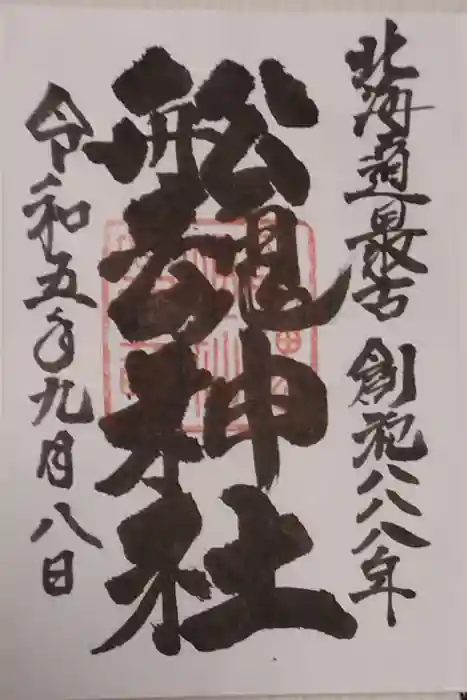 北海道最古 創祀八八八年
船魂神社
令和五年九月八日